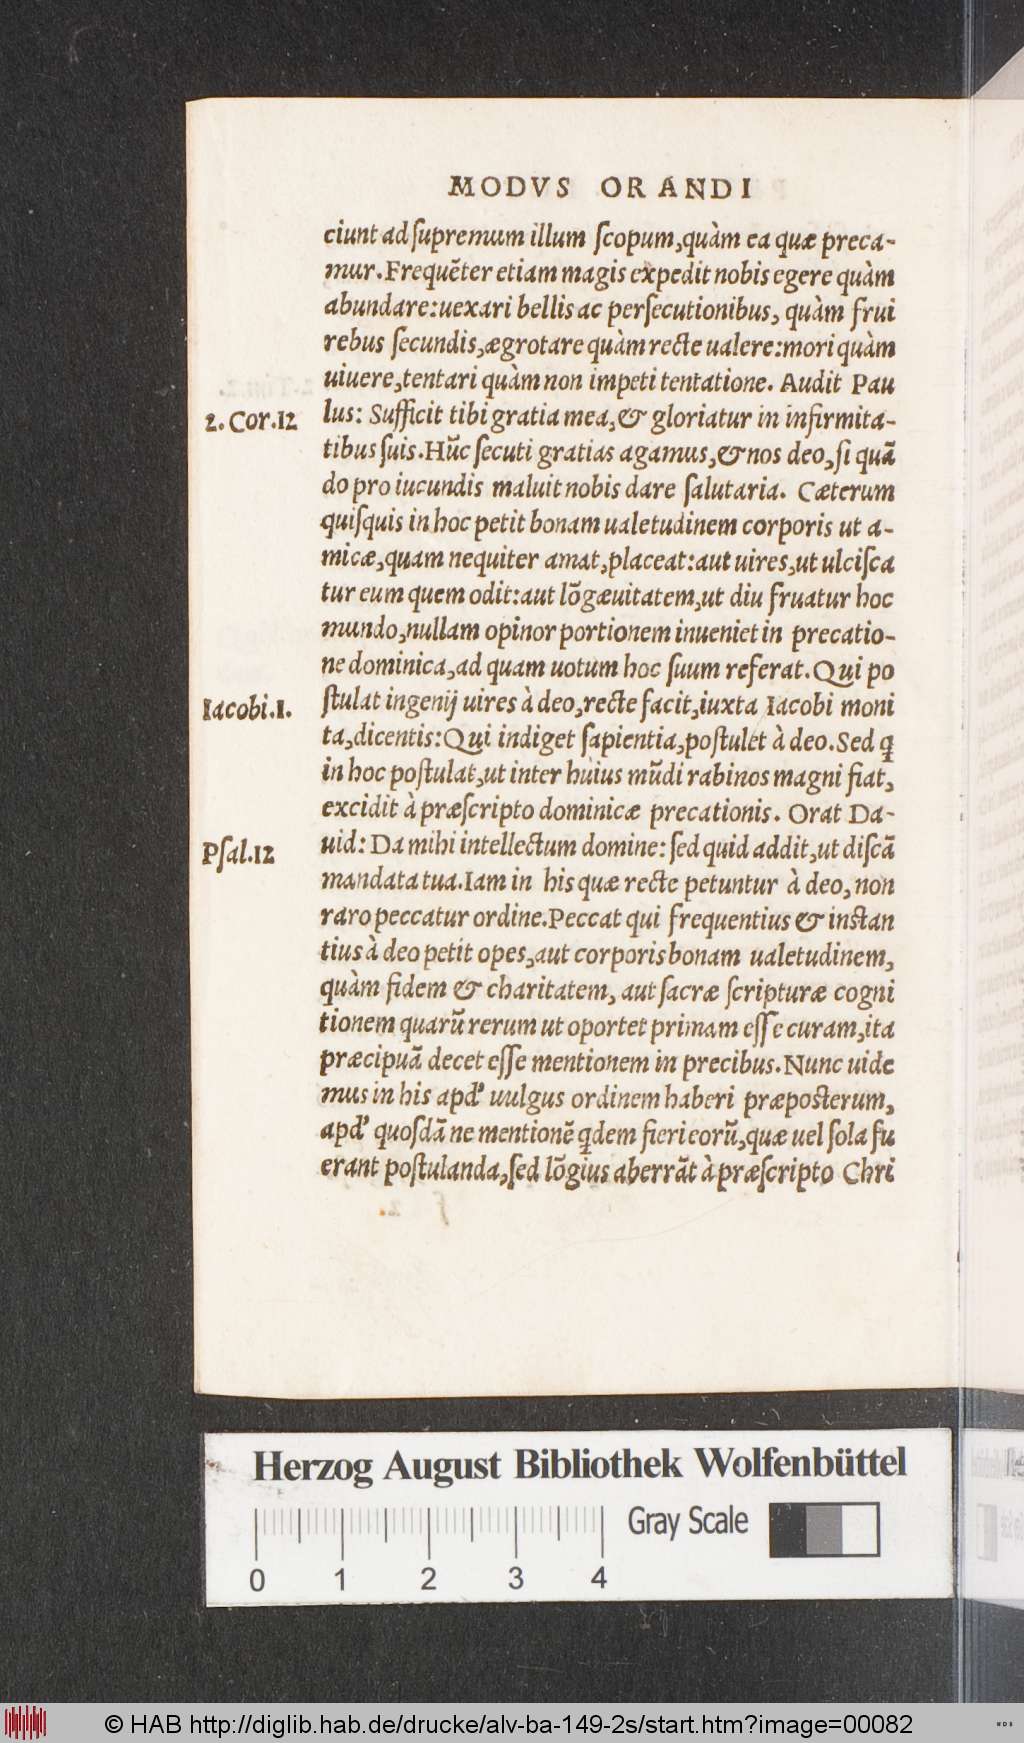 MODVS ORANDI
ciunt ad ſupremum illum ſcopum, quàm ea quæ preca-
mur. Frequẽter etiam magis expedit nobis egere quàm
abundare: uexari bellis ac perſecutionibus, quàm frui
rebus ſecundis, ægrotare quàm recte ualere: mori quàm
uiuere, tentari quàm non impeti tentatione. Audit Pau
2. Cor. 12
lus: Sufficit tibi gratia mea, & gloriatur in infirmita-
tibus ſuis. Hũc ſecuti gratias agamus, & nos deo, ſi quã
do pro iucundis maluit nobis dare ſalutaria. Cæterum
quiſquis in hoc petit bonam ualetudinem corporis ut a-
micæ, quam nequiter amat, placeat: aut uires, ut ulciſca
tur eum quem odit: aut lõgæuitatem, ut diu fruatur hoc
mundo, nullam opinor portionem inueniet in precatio-
ne dominica, ad quam uotum hoc ſuum referat. Qui po
Iacobi. 1.
ſtulat ingenij uires à deo, recte facit, iuxta Iacobi moni
ta, dicentis: Qui indiget ſapientia, poſtulet à deo. Sed q̃
in hoc poſtulat, ut inter huius mũdi rabinos magni fiat,
excidit à præſcripto dominicæ precationis. Orat Da-
Pſal. 12
uid: Da mihi intellectum domine: ſed quid addit, ut diſcã
mandata tua. Iam in his quæ recte petuntur à deo, non
raro peccatur ordine. Peccat qui frequentius & inſtan
tius à deo petit opes, aut corporis bonam ualetudinem,
quàm fidem & charitatem, aut ſacræ ſcripturæ cogni
tionem quarũ rerum ut oportet primam eſſe curam, ita
præcipuã decet eſſe mentionem in precibus. Nunc uide
mus in his apd' uulgus ordinem haberi præpoſterum,
apd' quoſdã ne mentionẽ q̃dem fieri eorũ, quæ uel ſola fu
erant poſtulanda, ſed lõgius aberrãt à præſcripto Chri
Herzog August Bibliothek Wolfenbüttel
Gray Scale
0 1 2 3 4
© HAB http://diglib.hab.de/drucke/alv-ba-149-2s/start.htm?image=00082